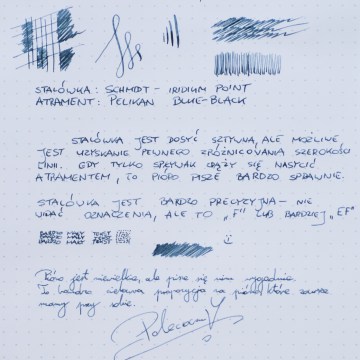 STALÓWKA: SCHMIDT - IRIDIUM POINT
ATRAMENT: PELIKAN BLUE-BLACK
STALÓWKA JEST DOSYĆ SZTYWNA, ALE MOŻLIWE
JEST UZYSKANIE PEWNEGO ZRÓŻNICOWANIA SZEROKOŚCI
LINII. GDY TYLKO SPŁYWAK ZDĄŻY SIĘ NASYCIĆ
ATRAMENTEM, TO PIÓRO PISZE BARDZO SPRAWNIE.
STALÓWKA JEST BARDZO PRECYZYJNA - NIE
WIDAĆ OZNACZENIA, ALE TO „F" LUB BARDZIEJ „EF"
BARDZO MAŁY TEKST
BARDZO MAŁY TEKST
BARDZO MAŁY TEKST
:)
Pióro jest niewielkie, ale pisze się nim wygodnie.
To bardzo ciekawa propozycja na pióro, które zawsze
mamy przy sobie.
Polecam!